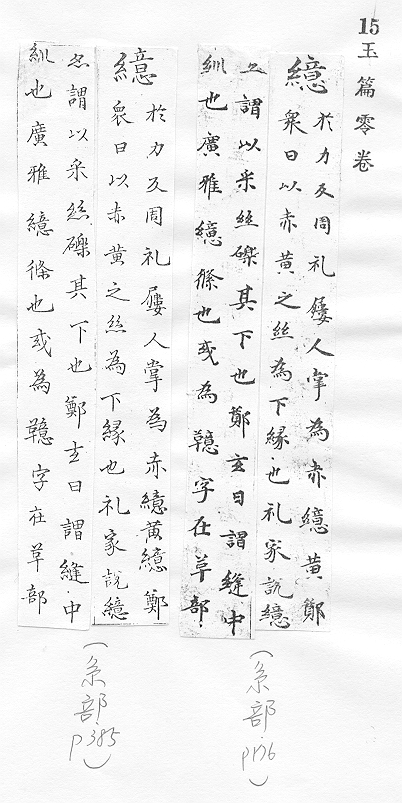 15 玉篇零卷
繶
於力反周礼屨人掌為赤繶黄鄭
衆曰以赤黄之絲為下緣也礼家説繶
之謂以采絲礫其下也鄭玄曰謂縫中
紃也廣雅繶絛也或為字在草部
(糸部 p176)
繶
於力反周礼屨人掌為赤繶黄繶鄭
衆曰以赤黄之絲為下緣也礼家説繶
謂以采絲礫其下也鄭玄曰謂縫中
紃也廣雅繶絛也或為字在草部
(糸部 p385)